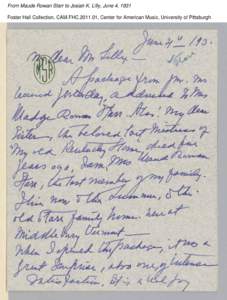 From Maude Rowan Starr to Josiah K. Lilly, June 4, 1931
Foster Hall Collection, CAM.FHC.2011.01, Center for American Music, University of Pittsburgh.
June 4" 193
My dear Mr. Lilly—
A package from you was
received yesterday, addressed to Mrs
Madge Rowan Starr. Alas! My dear
Sister, the beloved last Mistress of
"My old Kentucky Home, died four
years ago, I am, Mrs. Maude Rowan
Starr, the last member of my family.
I live now in the Summer, in the
old Starr family home. here at
Middlebury Vermont—
When I opened the package, it was a
great Surprise, also one of intense
Satisfaction,